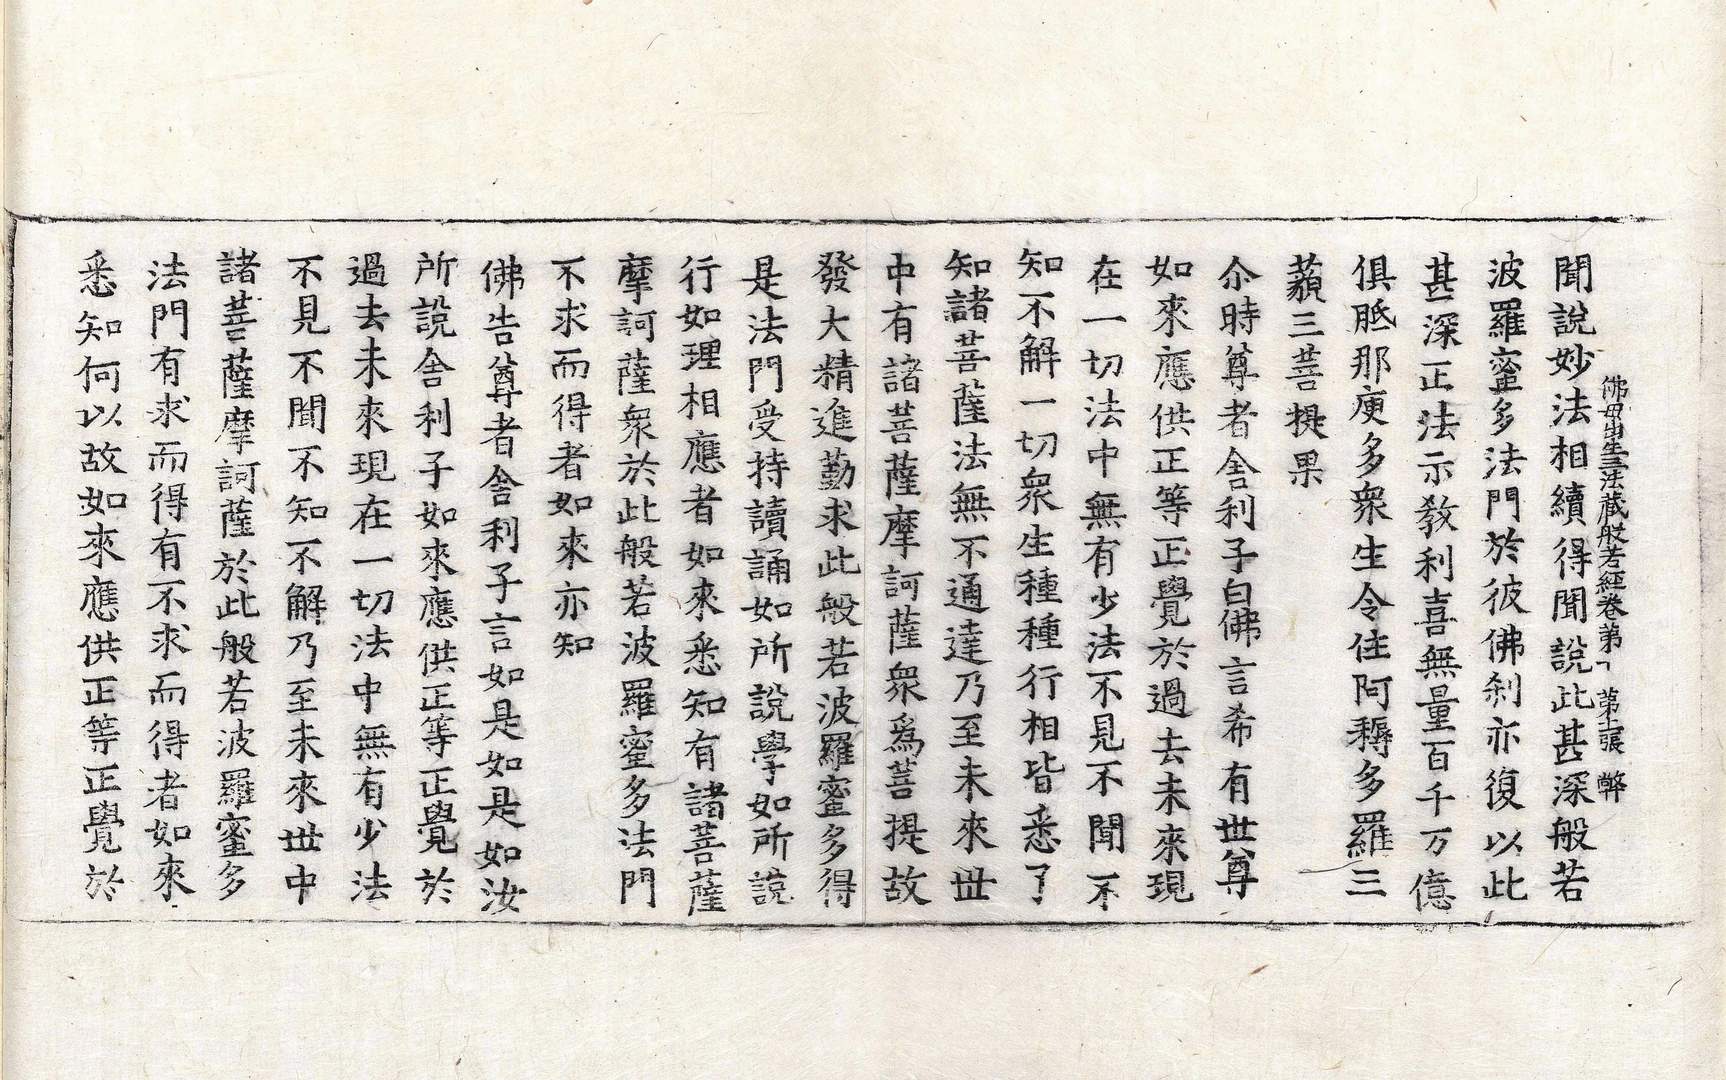 佛母出生三法藏般若經卷第 第 張 弊
聞說妙法相續得聞說此甚深般若
波羅蜜多法門於彼佛剎亦復以此
甚深正法示教利喜無量百千万億
俱胝那庾多衆生令住阿耨多羅三
藐三菩提果
尒時尊者舍利子白佛言希有世尊
如來應供正等正覺於過去未來現
在一切法中無有少法不見不聞不
知不解一切衆生種種行相皆悉了
知諸菩薩法無不通達乃至未來世
中有諸菩薩摩訶薩衆爲菩提故
發大精進勤求此般若波羅蜜多得
是法門受持讀誦如所說學如所說
行如理相應者如來悉知有諸菩薩
摩訶薩衆於此般若波羅蜜多法門
不求而得者如來亦知
佛告尊者舍利子言如是如是如汝
所說舍利子如來應供正等正覺於
過去未來現在一切法中無有少法
不見不聞不知不解乃至未來世中
諸菩薩摩訶薩於此般若波羅蜜多
法門有求而得有不求而得者如來
悉知何以故如來應供正等正覺於